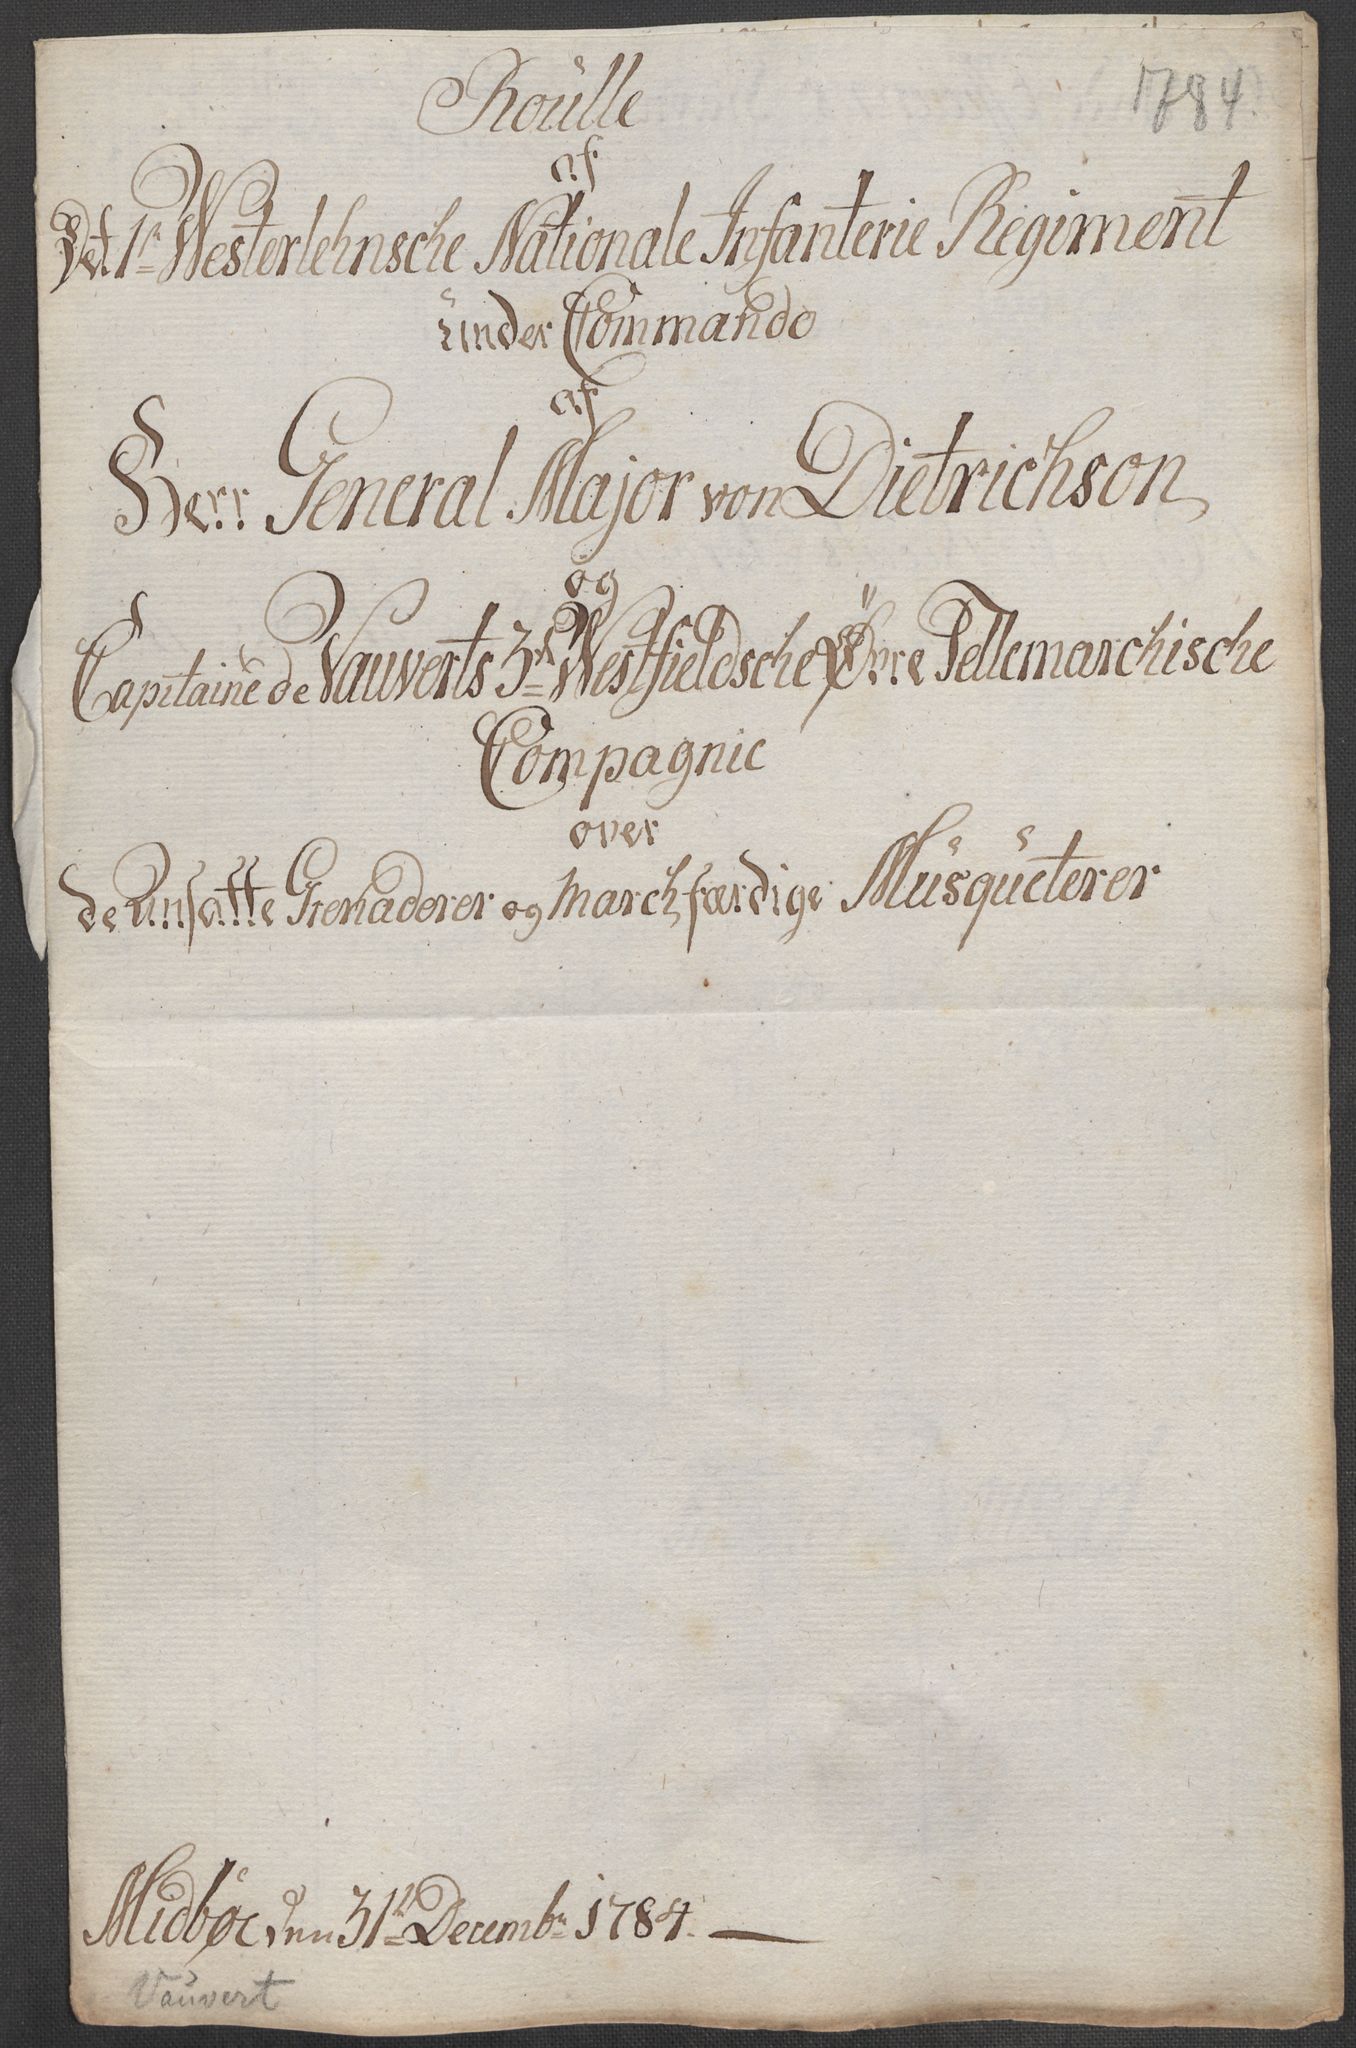 1784.
Roülle
af
Det 1te Westerlehnsche Nationale Infanterie Regiment
ünder Commando
af
Herr General Major von Dietrichson
og
Capitaine de Vauverts 3de Westfieldsche Øvre Tellemarchische
Compagnie
over
de ansatte Grenaderer og March færdige Müsqüeterer
Midbøe den 31te Decembr 1784.
Vauvert